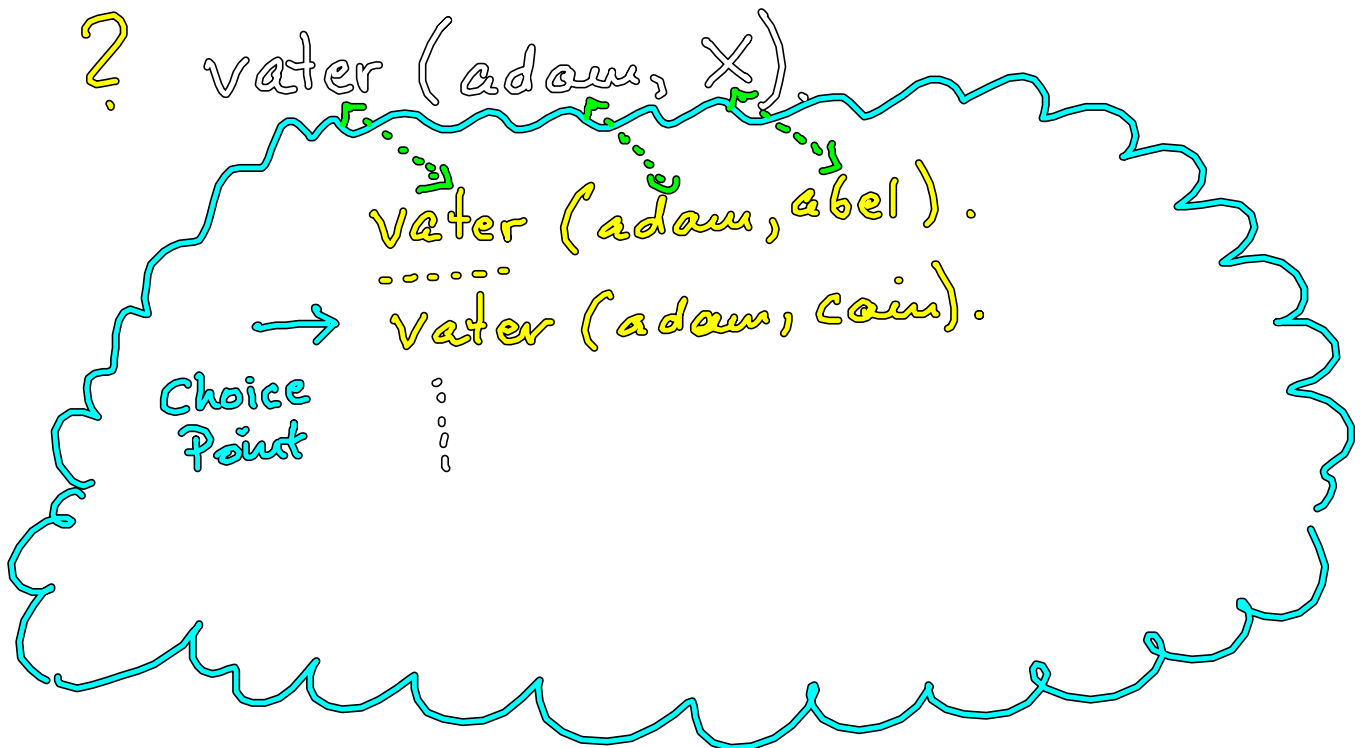 ? vater (adam, X).
vater (adam, abel).
vater (adam, cain).
Choice
Point